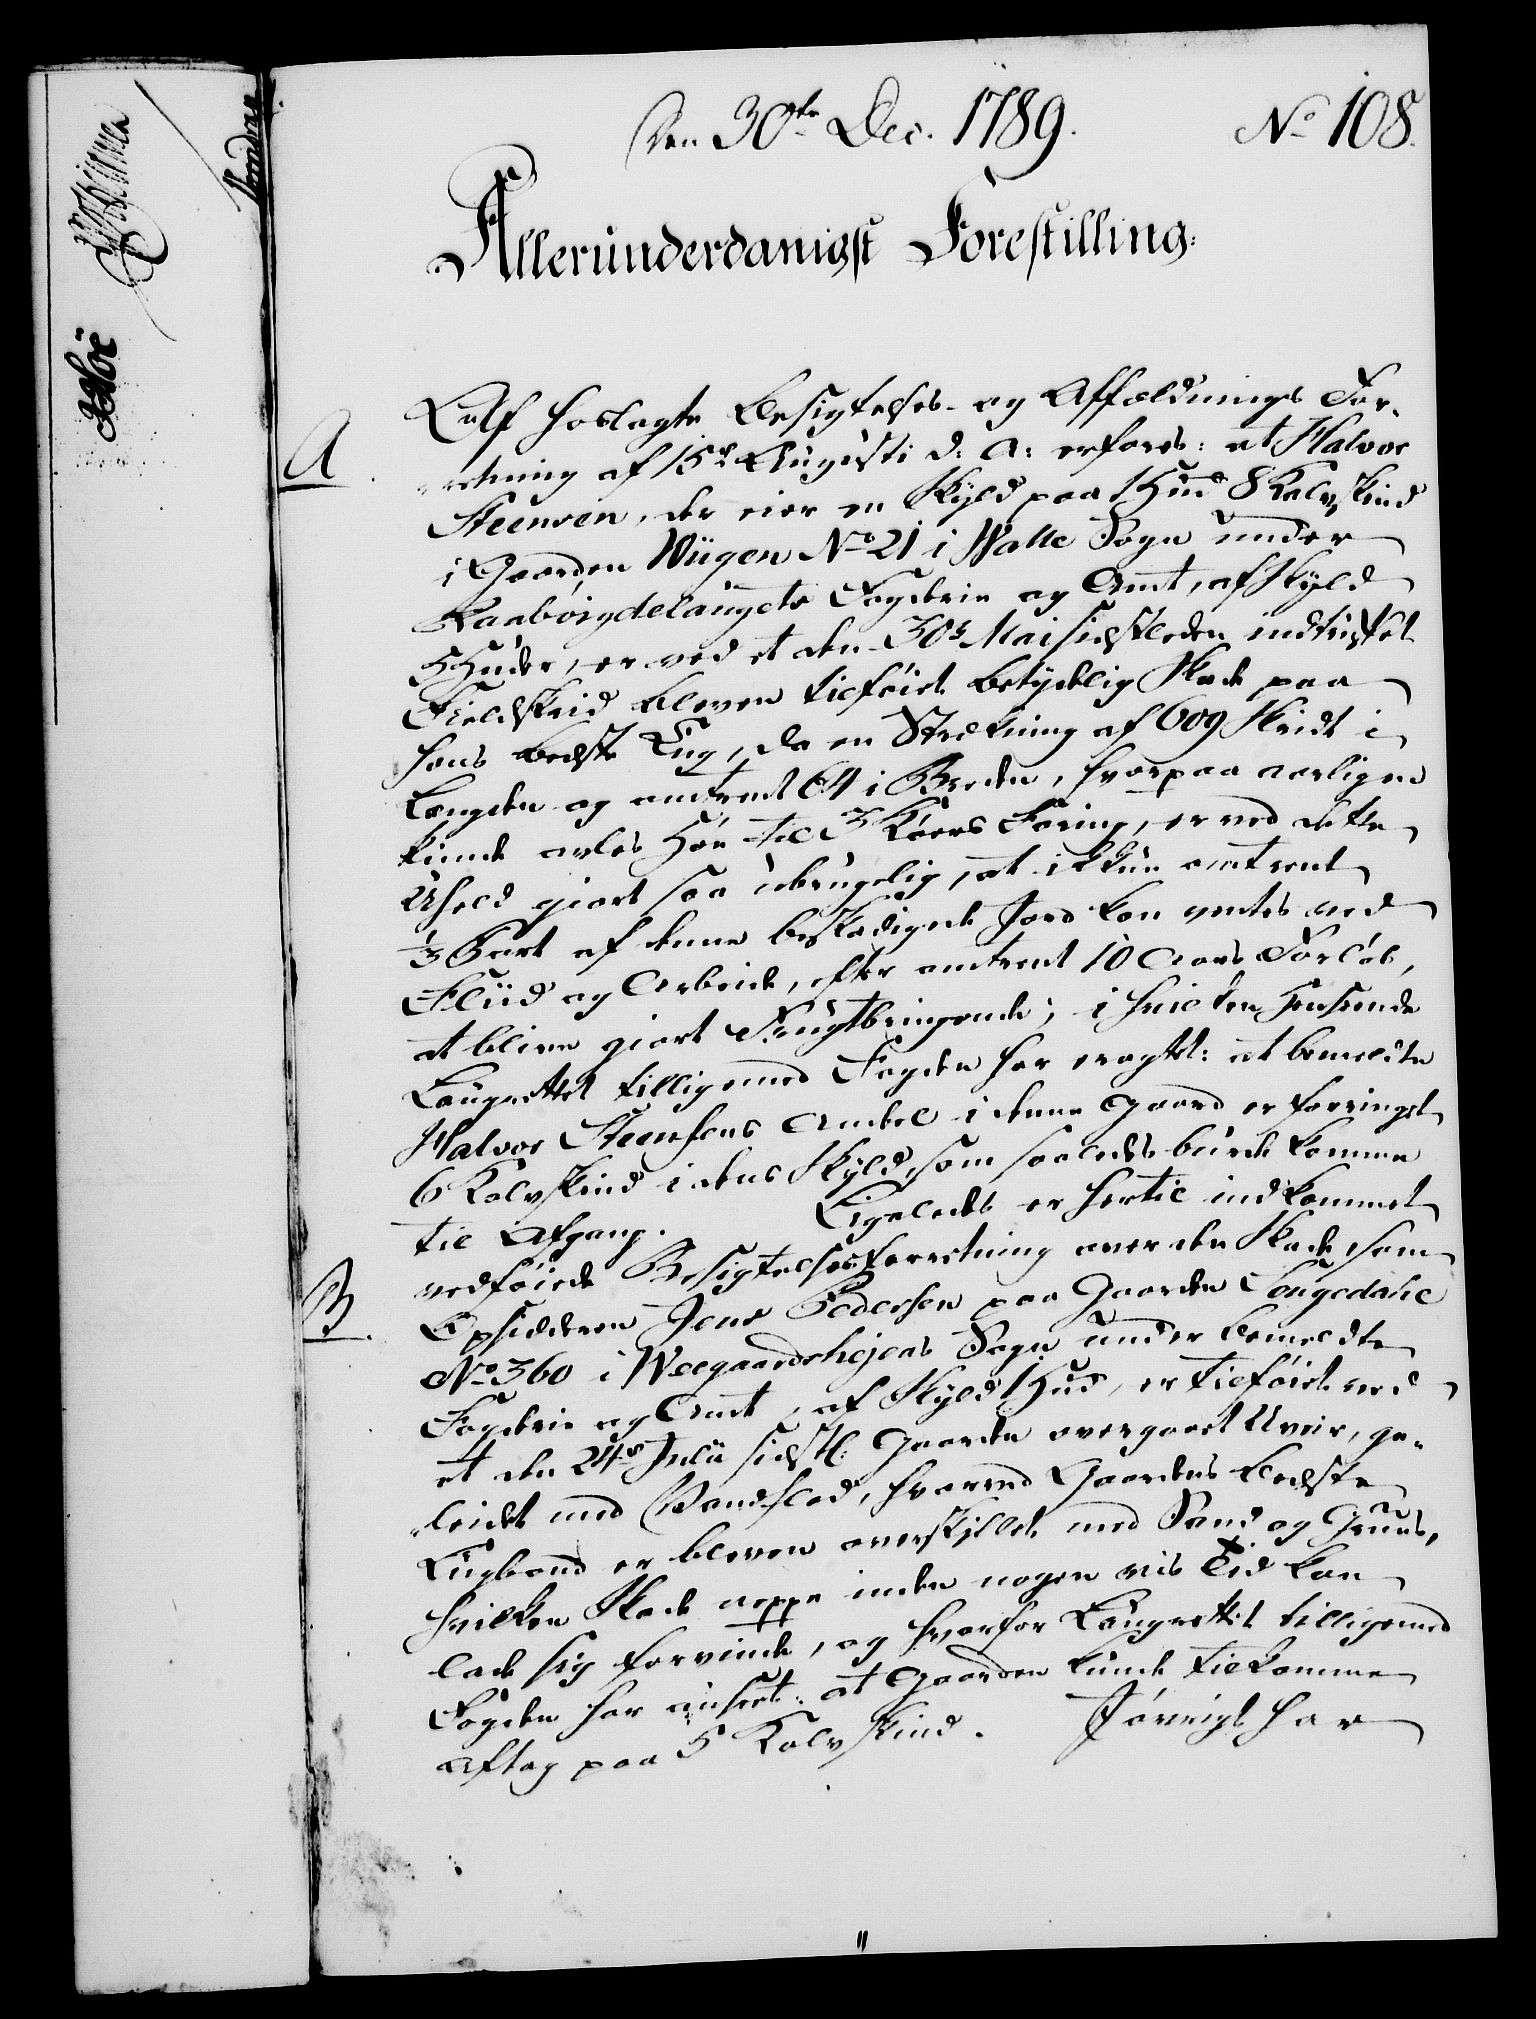 Den 30te Dec. 1789. No 108.
Allerunderdanigst Forestilling.
A
Ved hoslagte Besigtelses- og Affældnings For-
retning af 15de Augusti d: A: erfares: at Halvor
Steensen, der eier en Skyld paa 1 Hud 8 Kalvskind
i Gaarden Wiigen No 21 i Walle Sogn under
Raabøigdelaugets Fogderie og Amt, af Skyld
5 Huder, er ved et den 30te Mai sidstleden indtruffet
Fieldskrid bleven tilføiet betydelig Skade paa
hans bedste Eng, da en Strækning af 609 Skridt i
Længden og omtrent 64 i Breden, hvorpaa aarligen
kunde avles Høe til 3 Køers Foring, er ved dette
Uheld giort saa ubrugelig, at ikkun omtrent
1/3 Part af denne beskadigede Jord kan ventes ved
Fliid og Arbeide, efter omtrent 10 Aars Forløb,
at blive giort Frugtbringende; i hvilken Henseende
Laugrettet tilligemed Fogden har eragtet: at bemeldte
Halvor Steensens Andeel i denne Gaard er forringet
6 Kalvskind i dens Skyld, som saaledes burde komme
til Afgang. Ligeledes er hertil indkommet
B
vedføiede Besigtelsesforretning over den Skade, som
Opsidderen Jens Pedersen paa Gaarden Songedahl
No 360 i Weegaardsheiens Sogn under bemeldte
Fogderie og Amt, af Skyld 1 Hud, er tilføiet ved
et den 24de Julii sidstl: Gaarden overgaaet Uveir, ge-
leidet med Vandflod, hvorved Gaardens bedste
Engbond er bleven overskyllet med Sand og Gruus,
hvilken Skade neppe inden nogen vis Tid kan
lade sig forvinde, og hvorfor Laugrettet tilligemed
Fogden har anseet: at Gaarden kunde tilkomme
Aftag paa 5 Kalvskind. Iøvrigt har